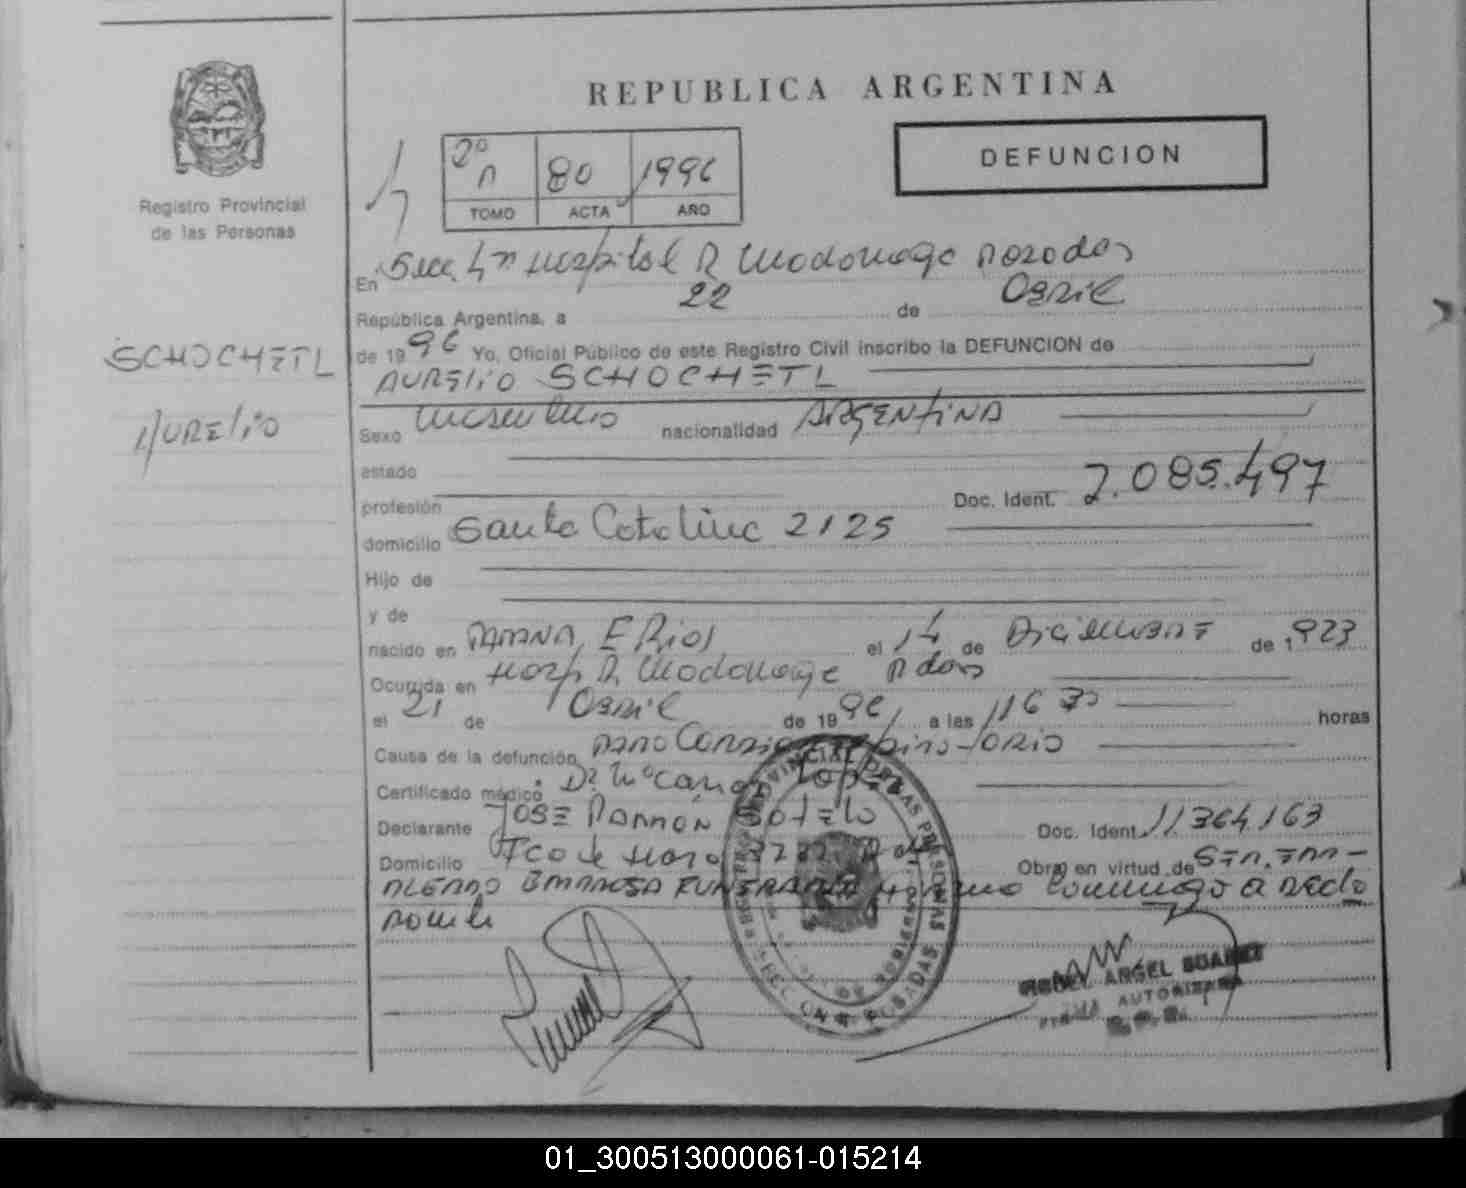 REPUBLICA ARGENTINA
DEFUNCION
Registro Provincial
de las Personas
2º 80 1996
TOMO ACTA AÑO
En Secc. 4ta Hospital R Madariaga Posadas
República Argentina, a 22 de Abril
de 1996 Yo, Oficial Público de este Registro Civil inscribo la DEFUNCION de
SCHOCHETL
AURELIO SCHOCHETL
AURELIO
Sexo Masculino nacionalidad ARGENTINA
estado
profesión Doc. Ident. 7.085.497
domicilio Santa Catalina 2125
Hijo de
y de
nacido en PARANA, E Rios el 14 de Diciembre de 1923
Ocurrida en Hosp R. Madariaga Pdas
el 21 de Abril de 1996 a las 16 30 horas
Causa de la defunción PARO Cardio Respiratorio
Certificado médico Dr
Declarante JOSE RAMON SOTELO Doc. Ident. 11364.163
Domicilio Fco de Haro Obra en virtud de
PLEADO FUNERARIA
SECCION POSADAS
ANGEL SUAREZ
FIRMA AUTORIZADA
01_300513000061-015214